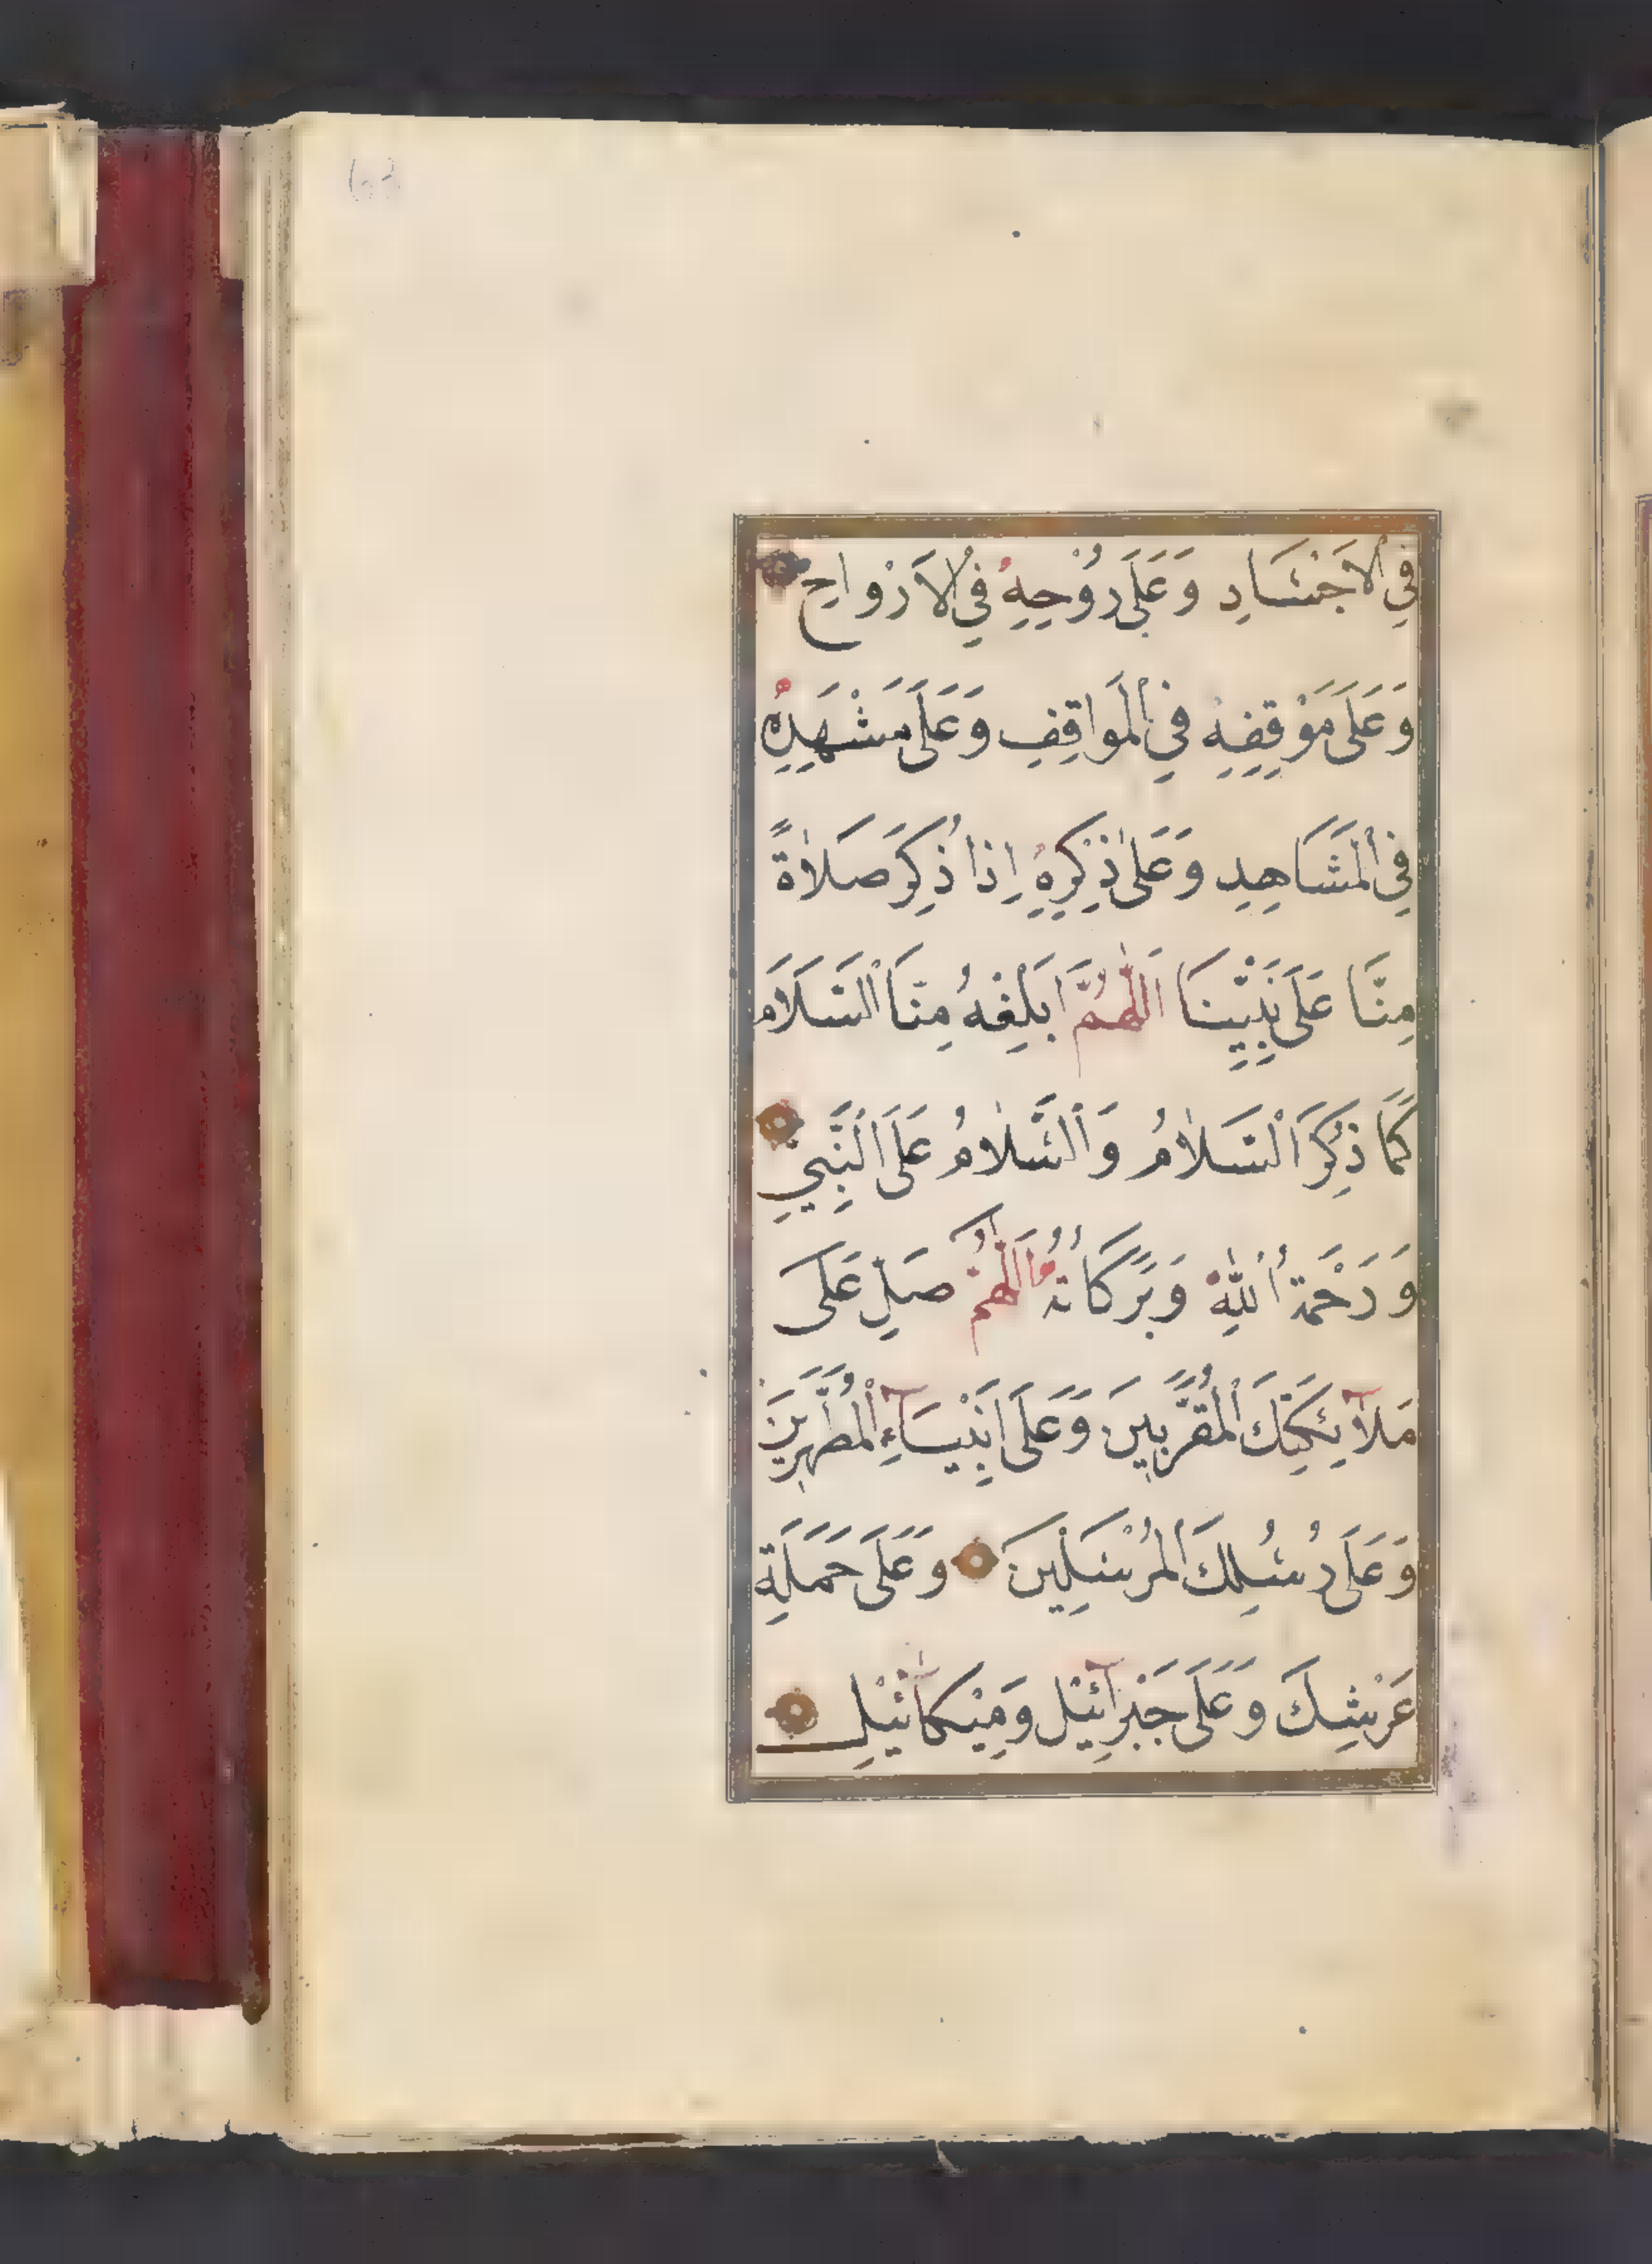 فِي الْاَجْسَادِ وَعَلَى رُوْحِهِ فِي الْاَرْوَاحِ
وَعَلَى مَوْقِفِهِ فِي الْمَوَاقِفِ وَعَلَى مَشْهَدِهِ
فِي الْمَشَاهِدِ وَعَلَى ذِكْرِهِ اِذَا ذُكِرَ صَلَاةً
مِنَّا عَلَى نَبِيِّنَا اَللّٰهُمَّ اَبْلِغْهُ مِنَّا السَّلَامَ
كَمَا ذُكِرَ السَّلَامُ وَالسَّلَامُ عَلَى النَّبِيِّ
وَرَحْمَةُ اللّٰهِ وَبَرَكَاتُهُ اَللّٰهُمَّ صَلِّ عَلَى
مَلَآئِكَتِكَ الْمُقَرَّبِينَ وَعَلَى اَنْبِيَآءِ الْمُطَهَّرِينَ
وَعَلَى رُسُلِكَ الْمُرْسَلِينَ وَعَلَى حَمَلَةِ
عَرْشِكَ وَعَلَى جَبْرَآئِيْلَ وَمِيْكَآئِيْلَ